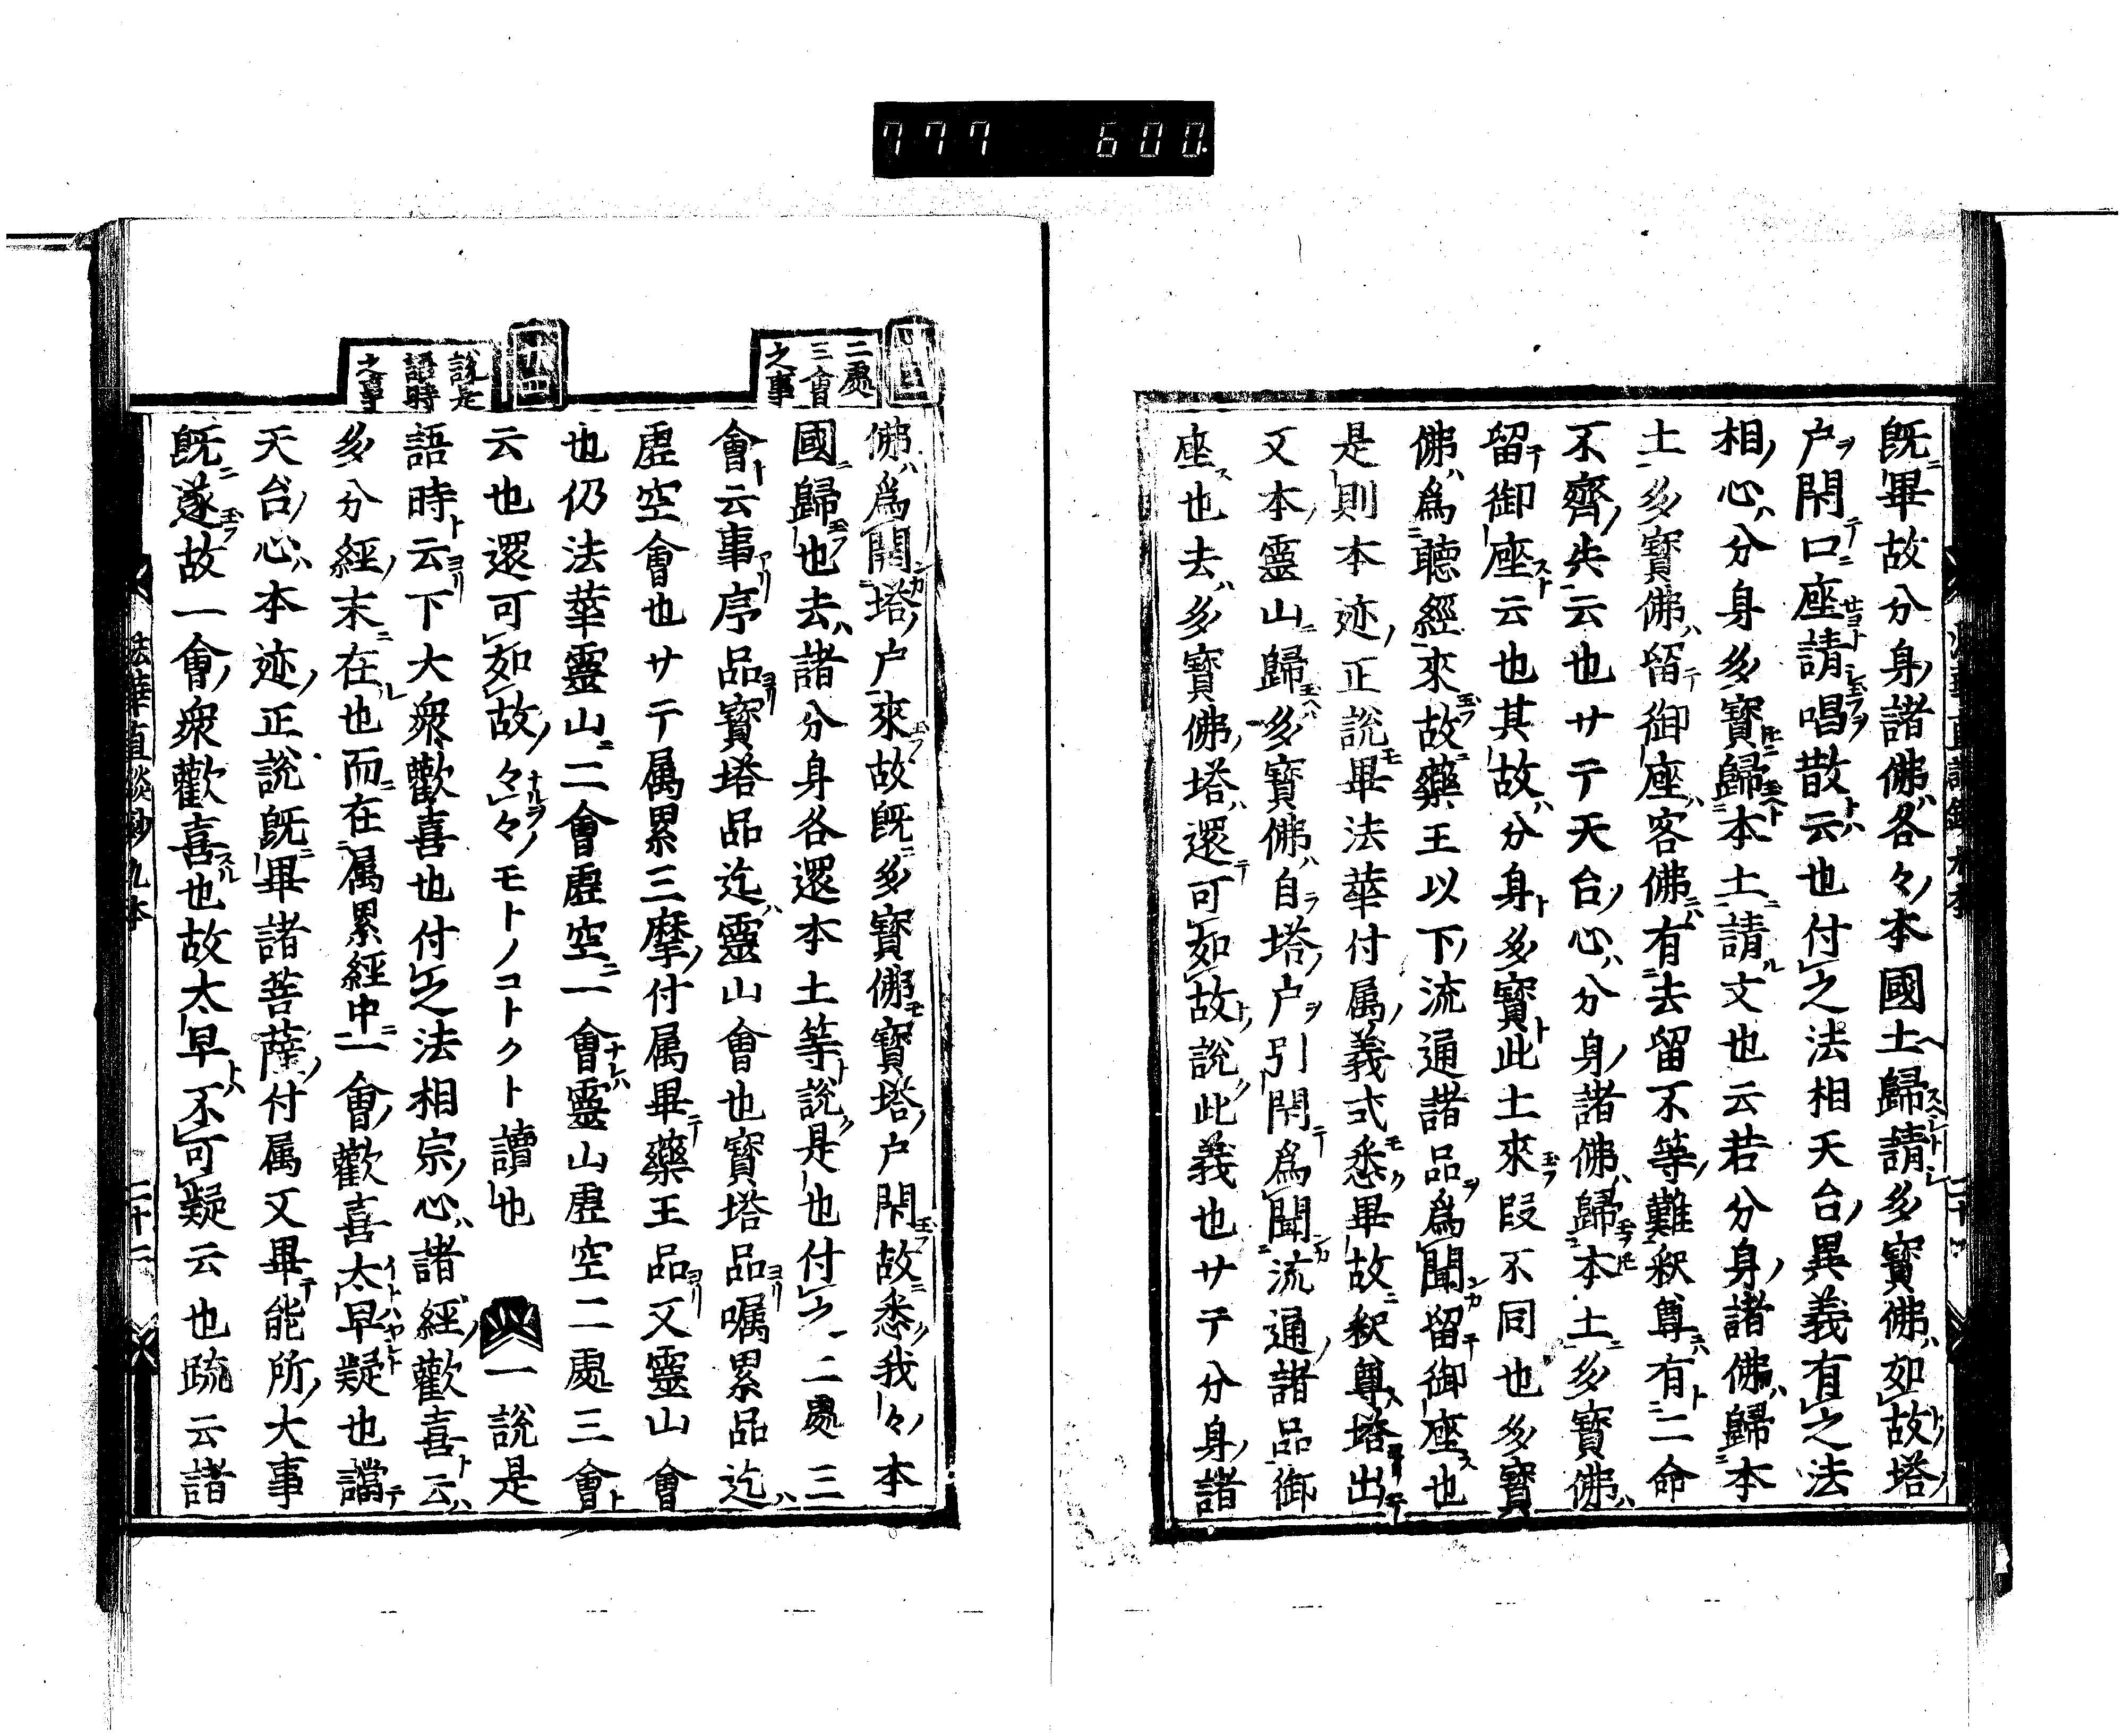 777 600.
既畢故分身諸佛各々本國土歸請多寳佛如故塔
户閇口座請唱散云也付之法相天台異義有之法
相心分身多寳歸本土請文也云若分身諸佛歸本
土多寳佛留御座客佛有去留不等難釈尊有二命
不齊失云也サテ天台心分身諸佛歸本土多寳佛
留御座云也其故分身多寳此土來段不同也多寳
佛爲聴經來故藥王以下流通諸品爲聞留御座也
是則本迹正說畢法華付属義式悉畢故釈尊塔出
又本靈山歸多寳佛自塔户引閇爲聞流通諸品御
座也去多寳佛塔還可如故說此義也サテ分身諸
二處
三會
之事
佛爲開塔户來故既多寳佛寳塔户閇故悉我々本
國歸也去諸分身各還本土等說是也付之二處三
會云事序品寳塔品迄靈山會也寳塔品嘱累品迄
虚空會也サテ属累三摩付属畢藥王品又靈山會
也仍法華靈山二會虚空一會靈山虚空二處三會
云也還可如故々々モトノコトクト讀也 一說是
說是
語時
之事
語時云下大衆歡喜也付之法相宗心諸經歡喜云
多分經末在也而在属累經中一會歡喜太早疑也讜
天台心本迹正說既畢諸菩薩付属又畢能所大事
既遂故一會衆歡喜也故太早不可疑云也䟽云諸
法華直談鈔九本 二十二